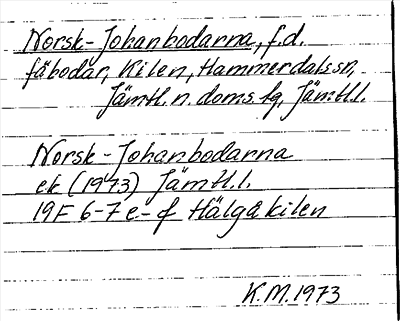 Norsk-Johanbodarna, f.d.
fäbodar, Kilen, Hammerdals sn,
Jämtl. n. doms. tg, Jämtl. l.
Norsk-Johanbodarna
ek (1973) Jämtl. l.
19F 6-7 e-f Hälgåkilen
K.M. 1973